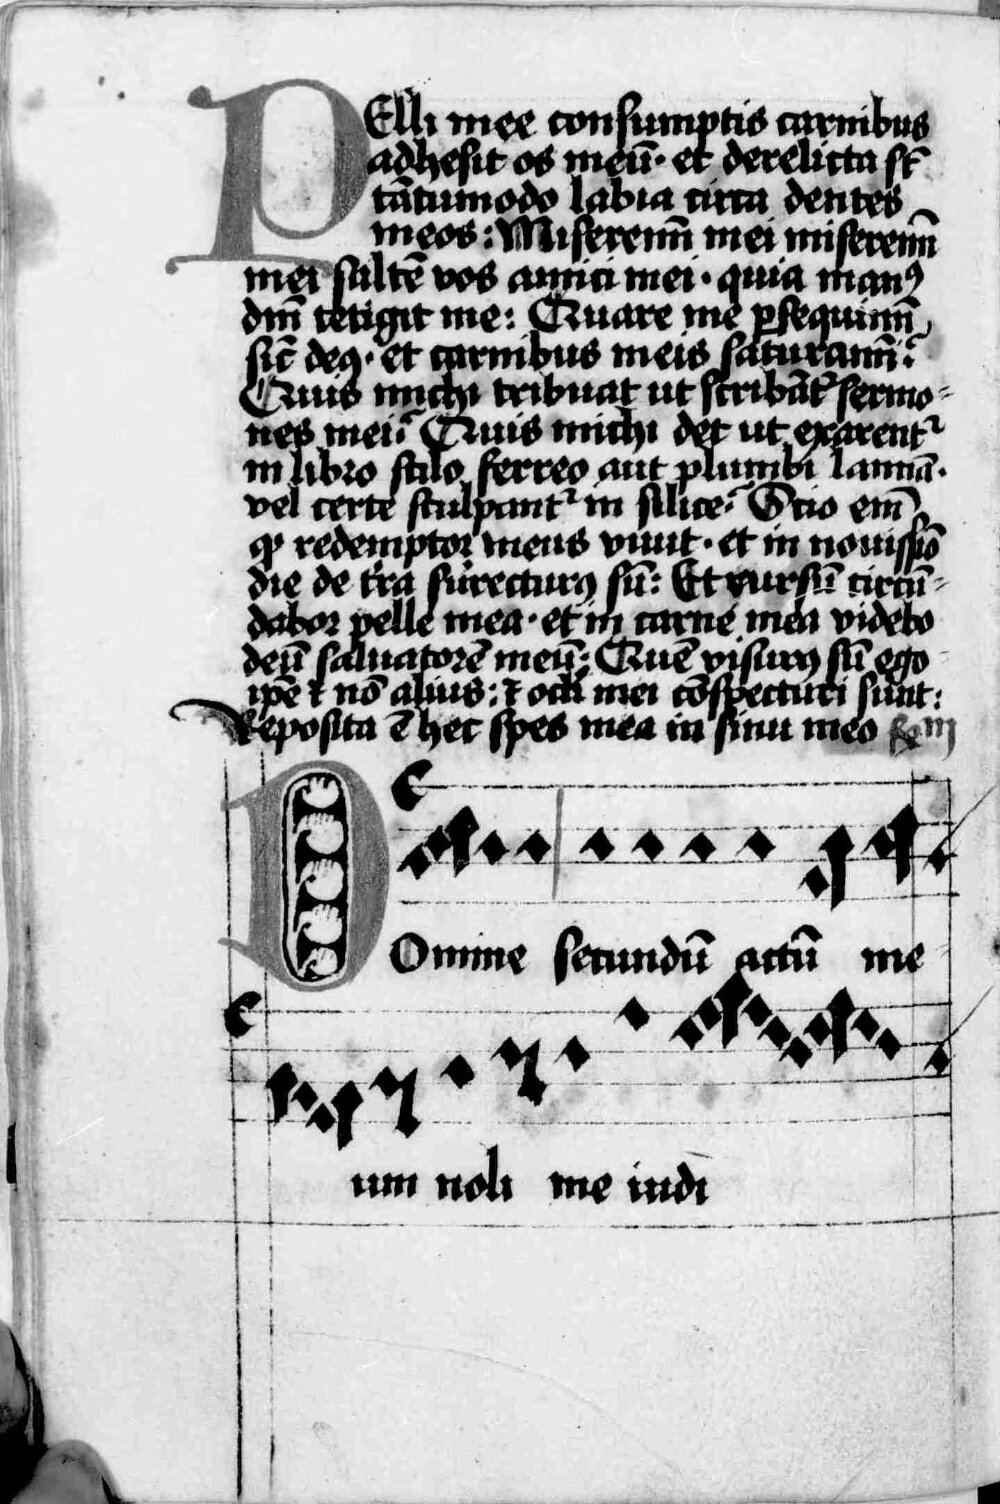 PElli mee consumptis carnibus
adhesit os meū· et derelicta st̄
tātumodo labia circa dentes
meos: Miseremī mei miseremī
mei saltē vos amici mei· quia manꝰ
dm̄ tetigit me: Quare me ꝑsequimī
sic̄ deꝰ· et carnibus meis saturamī:
Quis michi tribuat ut scribāt᷑ sermo-
nes mei: Quis michi det ut exarent᷑
in libro stilo ferreo aut plumbi lamīa·
vel certe sculpant᷑ in silice: Scio em̄
ꝙ redemptor meus viuit· et in nouissīo
die de t̄ra surrecturꝰ sū: Et rursū circū-
dabor pelle mea· et in carne mea videbo
deū saluatorē meū: Quē visurꝰ sū ego
ip̄e ⁊ nō alius: ⁊ oculi mei cōspecturi sunt:
Reposita ē hec spes mea in sinu meo
DOmine secundū actū me
um noli me iudi